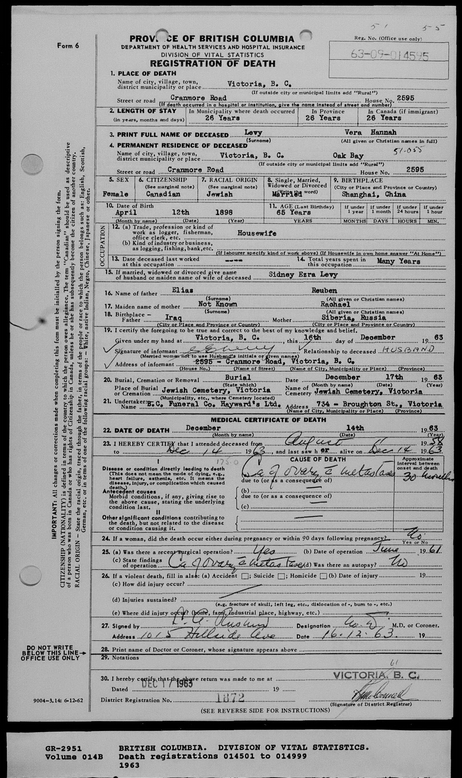 Form 6
PROVINCE OF BRITISH COLUMBIA
DEPARTMENT OF HEALTH SERVICES AND HOSPITAL INSURANCE
DIVISION OF VITAL STATISTICS
REGISTRATION OF DEATH
Reg. No. (Office use only)
63-09-014595
1. PLACE OF DEATH
Name of city, village, town, district municipality or place Victoria, B. C.
(If outside city or municipal limits add "Rural")
Street or road Cranmore Road House No. 2595
(If death occurred in a hospital or institution, give the name instead of street and number)
2. LENGTH OF STAY In Municipality where death occurred In Province In Canada (if immigrant)
(in years, months and days) 26 Years 26 Years 26 Years
3. PRINT FULL NAME OF DECEASED Levy Vera Hannah
(Surname) (All given or Christian names in full)
4. PERMANENT RESIDENCE OF DECEASED
Name of city, village, town, district municipality or place Victoria, B. C. Oak Bay
(If outside city or municipal limits add "Rural")
Street or road Cranmore Road House No. 2595
5. SEX 6. CITIZENSHIP 7. RACIAL ORIGIN 8. Single, Married, Widowed or Divorced 9. BIRTHPLACE
(See marginal note) (See marginal note) (City or Place and Province or Country)
Female Canadian Jewish Married Shanghai, China
10. Date of Birth 11. AGE (Last Birthday)
April 12th 1898 65 Years
(Month by name) (Day) (Year) YEARS MONTHS DAYS HOURS MIN.
OCCUPATION
12. (a) Trade, profession or kind of work as logger, fisherman, office clerk, etc. Housewife
(b) Kind of industry or business, as logging, fishing, bank, etc.
13. Date deceased last worked at this occupation 14. Total years spent in this occupation Many Years
15. If married, widowed or divorced give name of husband or maiden name of wife of deceased Sidney Ezra Levy
16. Name of father Elias Reuben
(Surname) (All given or Christian names)
17. Maiden name of mother Not Known Rachael
(Surname) (All given or Christian names)
18. Birthplace - Father Iraq Mother Siberia, Russia
(City or Place and Province or Country) (City or Place and Province or Country)
19. I certify the foregoing to be true and correct to the best of my knowledge and belief.
Given under my hand at Victoria, B. C. this 16th day of December 19 63
Signature of informant Relationship to deceased HUSBAND
Address of informant 2595 - Cranmore Road, Victoria, B. C.
20. Burial, Cremation or Removal Burial Date December 17th 19 63
Place of Burial or Cremation Jewish Cemetery, Victoria Name of Cemetery Jewish Cemetery, Victoria
21. Undertaker B.C. Funeral Co. Hayward's Ltd. Address 734 - Broughton St., Victoria
MEDICAL CERTIFICATE OF DEATH
22. DATE OF DEATH December 14th 19 63
(Month by name) (Day) (Year)
23. I HEREBY CERTIFY that I attended deceased from August
to Dec 14 19 63, and last saw her alive on Dec 14 19 63
I CAUSE OF DEATH Approximate interval between onset and death
Disease or condition directly leading to death (a) Ca of ovary
due to (or as a consequence of)
Antecedent causes
Morbid conditions, if any, giving rise to the above cause, stating the underlying condition last.
(b)
due to (or as a consequence of)
(c)
II
Other significant conditions contributing to the death, but not related to the disease or condition causing it.
24. If a woman, did the death occur either during pregnancy or within 90 days following pregnancy? No
Yes or No
25. (a) Was there a recent surgical operation? Yes (b) Date of operation June 19 61
(c) State findings of operation Ca of ovary Was there an autopsy? No
26. If a violent death, fill in also: (a) Accident ; Suicide ; Homicide (b) Date of injury 19
(c) How did injury occur?
(d) Injuries sustained?
(e.g. fracture of skull, left leg, etc., dislocation of, burn to, etc.)
(e) Where did injury occur? farm, industrial place, highway, etc.)
27. Signed by Designation M.D. M.D., or Coroner.
Address 1015 Hillside Ave Date 16.12.63. 19
28. Print name of Doctor or Coroner, whose signature appears above
29. Notations
30. I hereby certify that the above return was made to me at VICTORIA, B. C.
Dated DEC 17 1963 19
Registration No. 1872
(Signature of District Registrar)
(SEE REVERSE SIDE FOR INSTRUCTIONS)
DO NOT WRITE
BELOW THIS LINE
OFFICE USE ONLY
GR-2951 BRITISH COLUMBIA. DIVISION OF VITAL STATISTICS.
Volume 014B Death registrations 014501 to 014999
1963